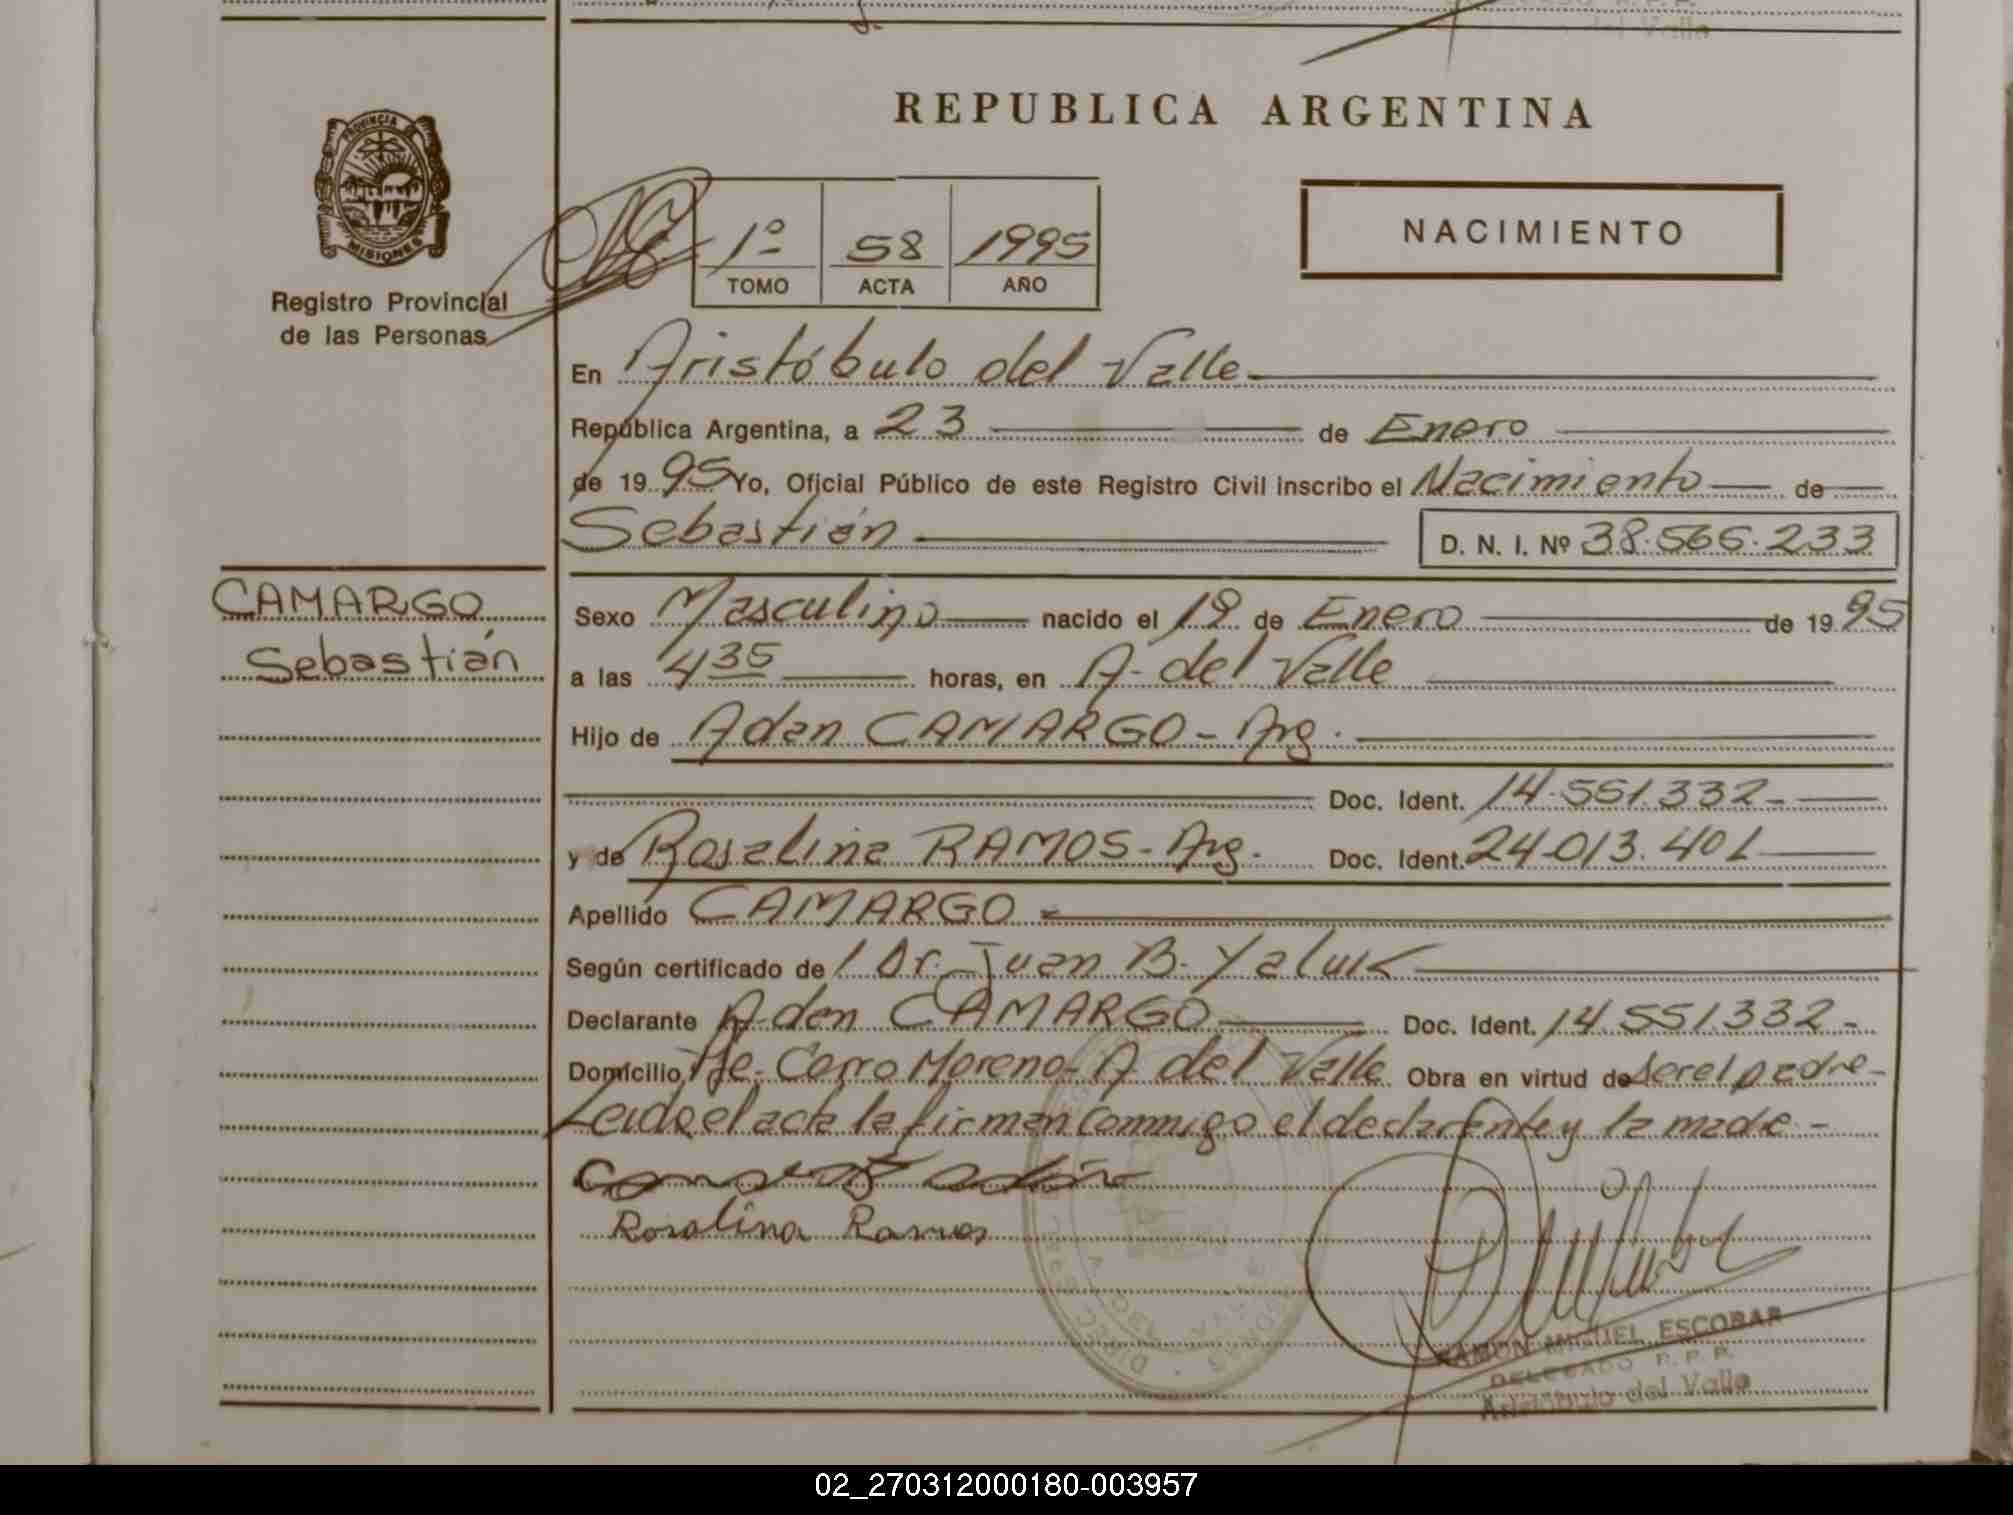 del Valle
REPUBLICA ARGENTINA
PROVINCIA DE
MISIONES
Registro Provincial
de las Personas
1º 58 1995
TOMO ACTA AÑO
NACIMIENTO
En Aristóbulo del Valle
República Argentina, a 23 de Enero
de 1995 Yo, Oficial Público de este Registro Civil inscribo el Nacimiento de
Sebastián D. N. I. Nº 38.566.233
CAMARGO
Sebastián
Sexo Masculino nacido el 19 de Enero de 1995
a las 4 35 horas, en A. del Valle
Hijo de Adan CAMARGO - Arg.
Doc. Ident. 14.551.332-
y de Rosalina RAMOS - Arg. Doc. Ident. 24.013.401
Apellido CAMARGO
Según certificado de l Dr. Juan B. Yaluk
Declarante Adan CAMARGO Doc. Ident. 14.551.332-
Domicilio Cerro Moreno - A. del Valle Obra en virtud de ser el padre-
Leida el acta la firman conmigo el declarante y la madre -
Rosalina Ramos
RAMON MIGUEL ESCOBAR
DELEGADO R. P. P.
Aristóbulo del Valle
02_270312000180-003957